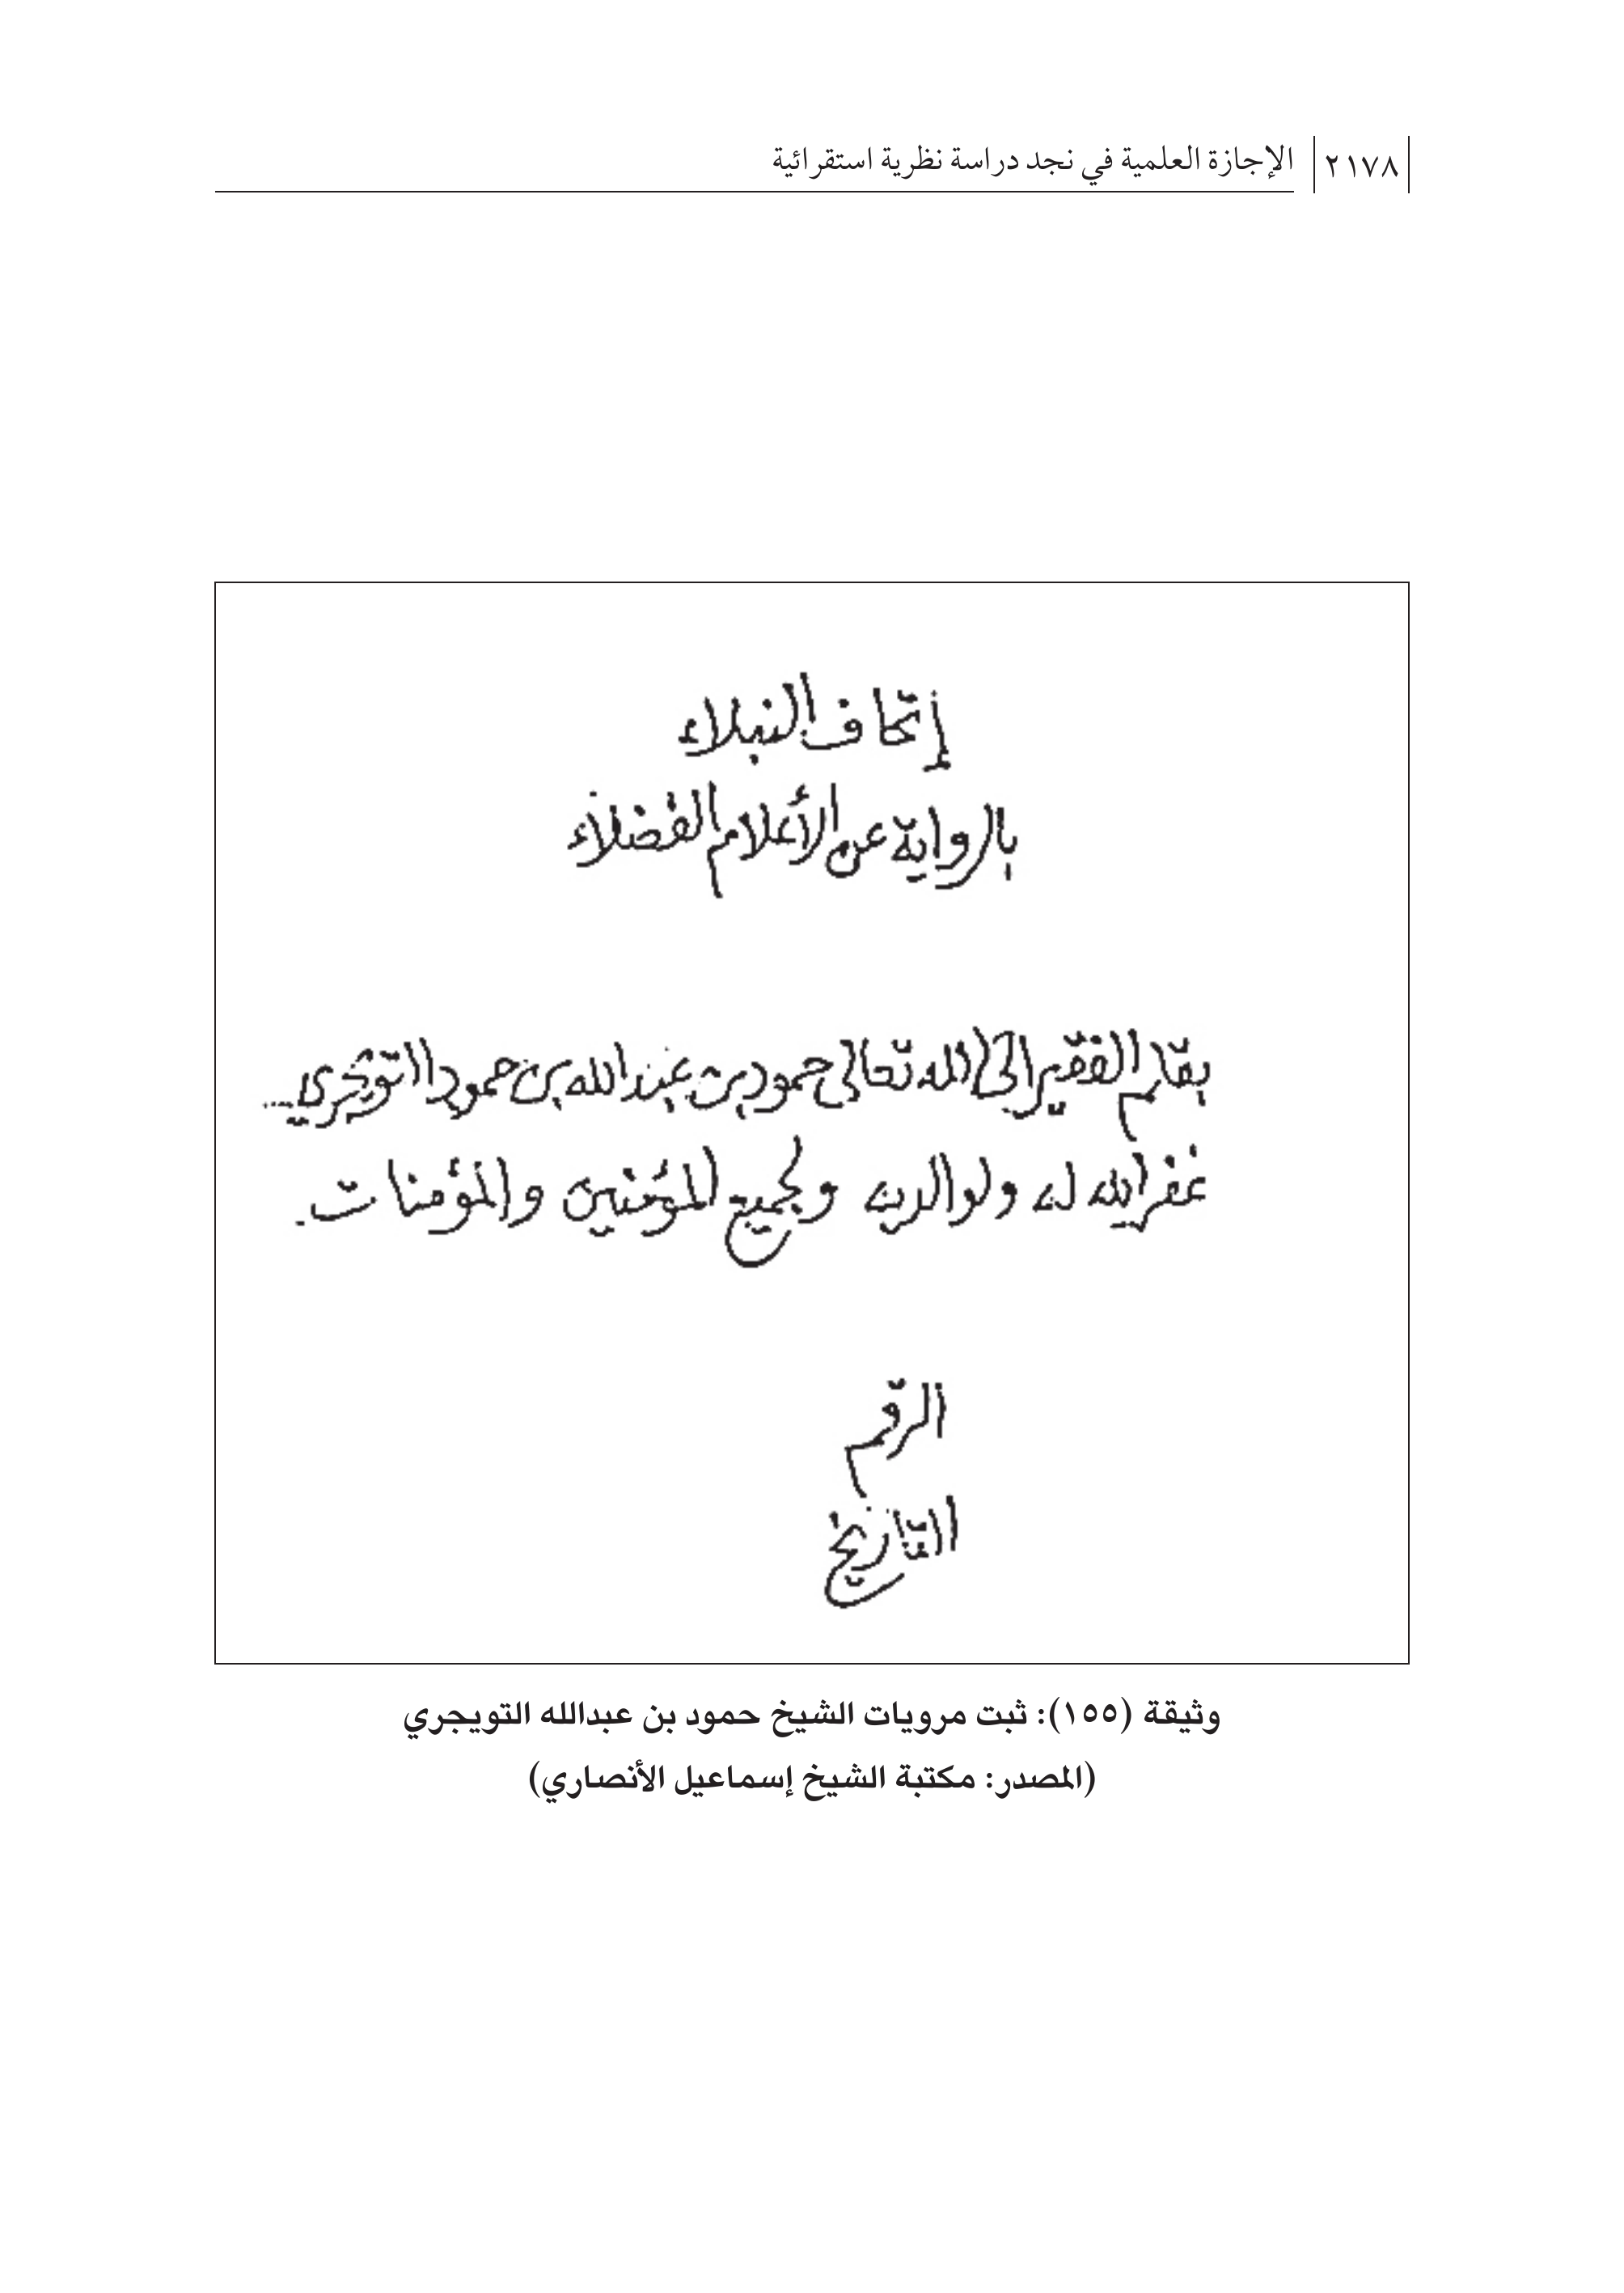 ٢١٧٨ الإجازة العلمية في نجد دراسة نظرية استقرائية
إتحاف النبلاء
بالرواية عن الأعلام الفضلاء
بقلم الفقير إلى الله تعالى حمود بن عبد الله بن حمود التويجري
غفر الله له ولوالديه ولجميع المؤمنين والمؤمنات .
الرقم
التاريخ
وثيقة (١٥٥): ثبت مرويات الشيخ حمود بن عبدالله التويجري
(المصدر: مكتبة الشيخ إسماعيل الأنصاري)